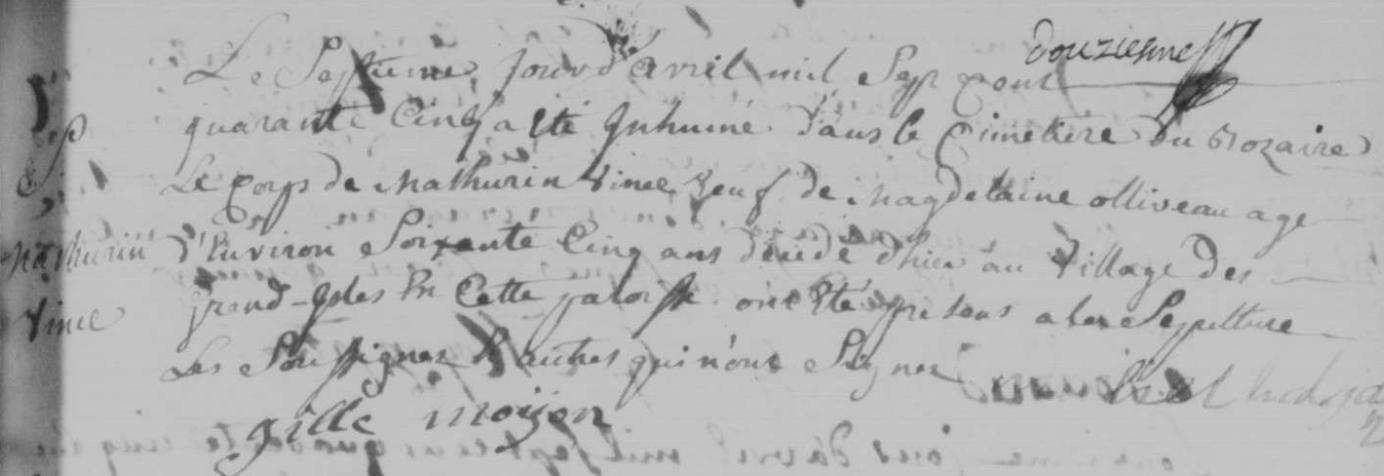 douziesme
Le Septieme Jour d'avril mil Sept Cent
quarante Cinq a esté Inhumé dans le Cimetiere Du Rozaire
Le Corps de Mathurin Vince Veuf de Magdelaine olliveau age
Mathurin d'Environ Soixante Cinq ans décédé d'hier au Village Des
Vince grand-Isles En Cette paroisse ont Eté presens a la Sepulture
Les Soussignes & autres qui n'ont Signer
gille moijen